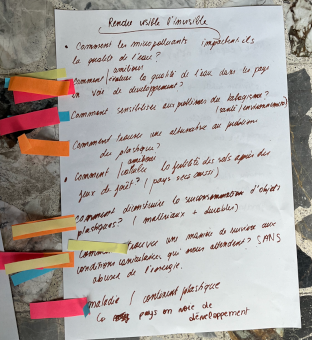 Rendre visible l'invisible
• Comment les micropolluants impactent-ils
la qualité de l'eau?
améliorer
Comment / évaluer la qualité de l'eau dans les pays
en voie de développement?
Comment sensibiliser aux problèmes du tabagisme?
(santé / environnement)
Comment trouver une alternative au problème
du plastique?
améliorer
• Comment / calculer la fertilité des sols après des
feux de forêt? ( pays secs aussi)
Comment déconstruire la surconsommation d'objets
plastiques? ( matériaux + durables)
trouver une manière de survivre aux
conditions caniculaires qui nous attendent? SANS
abuser de l'énergie.
maladie / continent plastique
pays en voie de
développement